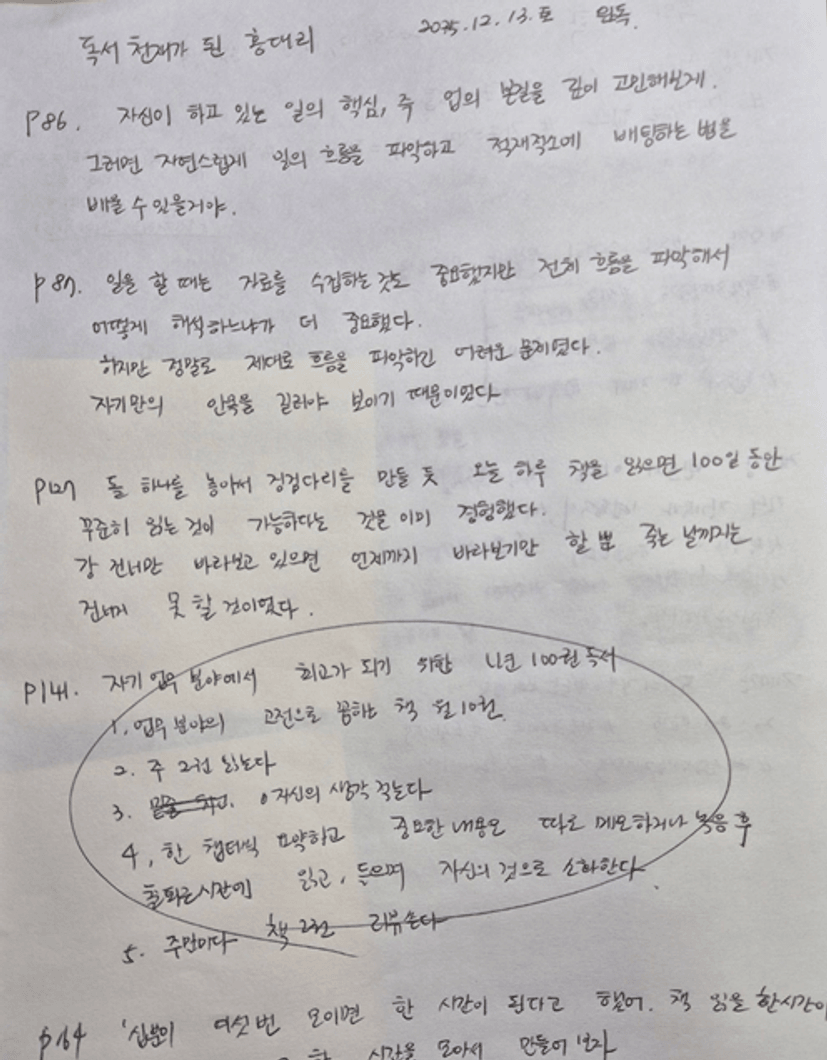 독서 천재가 된 홍대리 2025.12.13.토 완독.
P86. 자신이 하고 있는 일의 핵심, 즉 업의 본질을 깊이 고민해보게.
그러면 자연스럽게 일의 흐름을 파악하고 적재적소에 배팅하는 법을
배울 수 있을거야.
P87. 일을 할 때는 자료를 수집하는 것도 중요했지만 전체 흐름을 파악해서
어떻게 해석하느냐가 더 중요했다.
하지만 정말로 제대로 흐름을 파악하긴 어려운 문제였다.
자기만의 안목을 길러야 보이기 때문이었다
P127 돌 하나를 놓아서 징검다리를 만들 듯 오늘 하루 책을 읽으면 100일 동안
꾸준히 읽는 것이 가능하다는 것을 이미 경험했다.
강 건너만 바라보고 있으면 언제까지 바라보기만 할 뿐 죽는 날까지는
건너지 못 할 것이었다.
P141. 자기 업무 분야에서 최고가 되기 위한 1년 100권 독서
1. 업무 분야의 고전으로 꼽히는 책 월 10권.
2. 주 2권 읽는다
3. 자신의 생각 적는다
4. 한 챕터씩 요약하고 중요한 내용은 따로 메모하거나 녹음 후
출퇴근시간에 읽고, 들으며 자신의 것으로 소화한다.
5. 주말마다 책 2권 리뷰쓴다
P164 '십분이 여섯번 모이면 한 시간이 된다고 했어. 책 읽을 한시간이
한 시간을 모아서 만들어 보자